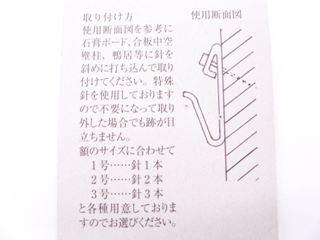 取り付け方
使用断面図を参考に
石膏ボード、合板中空
壁柱、鴨居等に針を
斜めに打ち込んで取り
付けてください。特殊
針を使用しております
ので不要になって取り
外した場合でも跡が目
立ちません。
額のサイズに合わせて
1号……針1本
2号……針2本
3号……針3本
と各種用意しておりま
すのでお選びください。
使用断面図